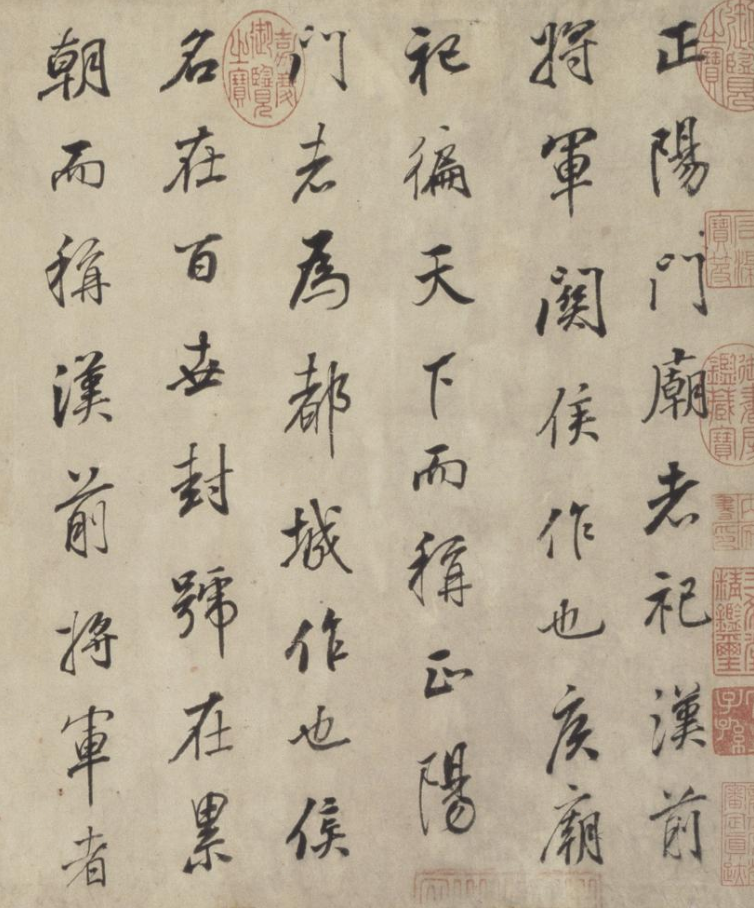 正陽門廟者祀漢前
將軍關侯作也侯廟
祀徧天下而稱正陽
門者為都城作也侯
名在百世封號在累
朝而稱漢前將軍者
嘉慶御覽之寶